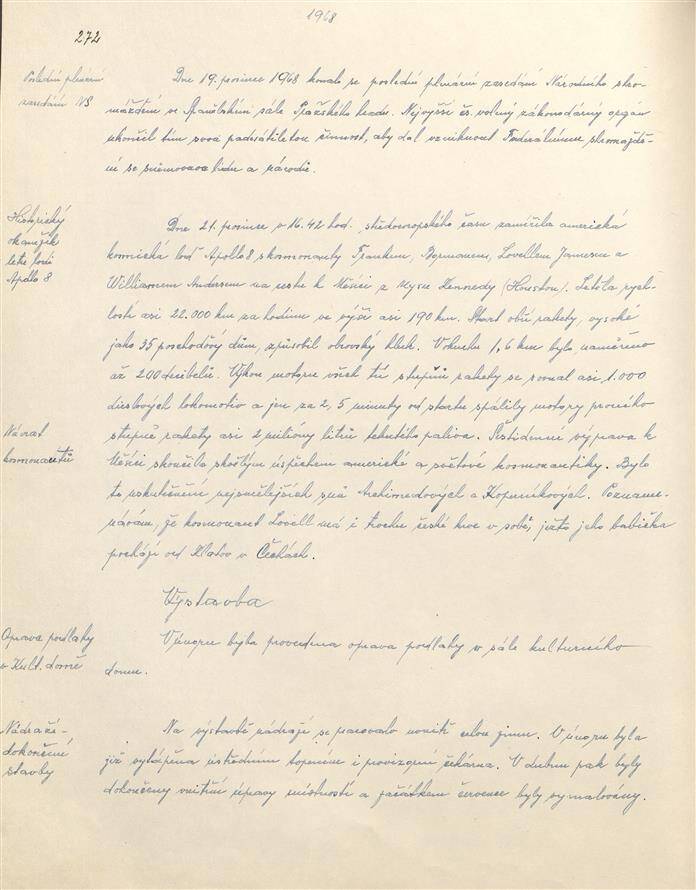 1968
272
Poslední plenární
zasedání NS
Dne 19. prosince 1968 konalo se poslední plenární zasedání Národního shro-
máždění ve Španělském sále Pražského hradu. Nejvyšší čs. volený zákonodárný orgán
ukončil tím svoji padesátiletou činnost, aby dal vzniknout Federálnímu shromáždě-
ní se sněmovnou lidu a národů.
Historický
okamžik
letu lodi
Apollo 8
Dne 21. prosince v 16.42 hod. středoevropského času zamířila americká
kosmická loď Apollo 8 s kosmonauty Frankem, Bormanem, Lovellem Jamesem a
Williamem Andersem na cestu k Měsíci z mysu Kennedy (Houston). Letěla rych-
lostí asi 22.000 km za hodinu ve výši asi 190 km. Start obří rakety, vysoké
jako 35 poschoďový dům, způsobil obrovský hluk. V okruhu 1,6 km bylo naměřeno
až 200 decibelů. Výkon motoru všech tří stupňů rakety se rovnal asi 1.000
dieslových lokomotiv a jen za 2,5 minuty od startu spálily motory prvního
stupně rakety asi 2 miliony litrů tekutého paliva. Šestidenní výprava k
Měsíci skončila skvělým úspěchem americké a světové kosmonautiky. Bylo
to uskutečnění nejsmělejších snů Archimedových a Koperníkových. Pozname-
návám, že kosmonaut Lovell má i trochu české krve v sobě, ježto jeho babička
pochází od Klatov v Čechách.
Návrat
kosmonautů
Výstavba
Oprava podlahy
v Kult. domě
V únoru byla provedena oprava podlahy v sále kulturního
domu.
Nádraží -
dokončení
stavby
Na výstavbě nádraží se pracovalo uvnitř celou zimu. V únoru byla
již vytápěna ústředním topením i provizorní čekárna. V dubnu pak byly
dokončeny vnitřní úpravy místností a začátkem července byly vymalovány.